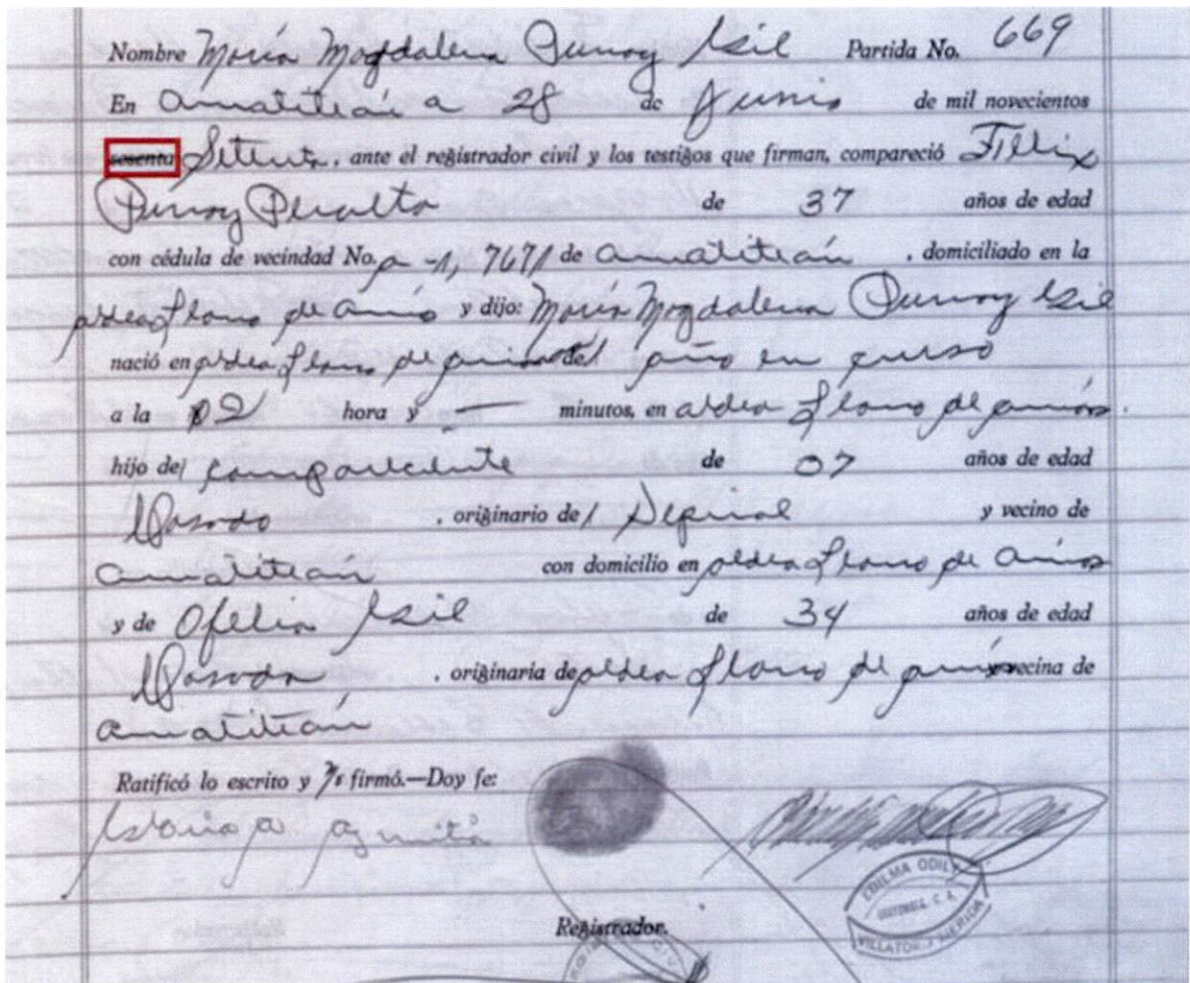 Nombre María Magdalena Punay Ixil Partida No. 669
En Amatitlán a 28 de Junio de mil novecientos
sesenta Setenta, ante el registrador civil y los testigos que firman, compareció Félix
Punay Peralta de 37 años de edad
con cédula de vecindad No. A-1, 7671 de Amatitlán, domiciliado en la
aldea Llano de Animas y dijo: María Magdalena Punay Ixil
nació en aldea Llano de Animas del año en curso
a la 02 hora y — minutos, en aldea Llano de Animas.
hijo del compareciente de 07 años de edad
Casado, originario de y vecino de
Amatitlán con domicilio en aldea Llano de Animas
y de Ofelia Ixil de 34 años de edad
Casada, originaria de aldea Llano de Animas vecina de
Amatitlán
Ratificó lo escrito y firmó.—Doy fe:
EDILMA ODILY
GUATEMALA, C. A.
VILLATORO MERIDA
Registrador.